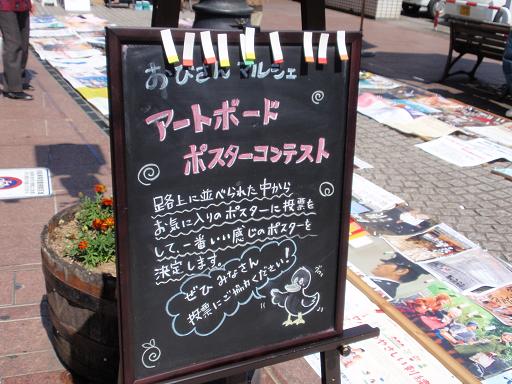 おびさんマルシェ
アートボード
ポスターコンテスト
路上に並べられた中から
お気に入りのポスターに投票を
して、一番いい感じのポスターを
決定します。
ぜひみなさん
投票にご協力ください!